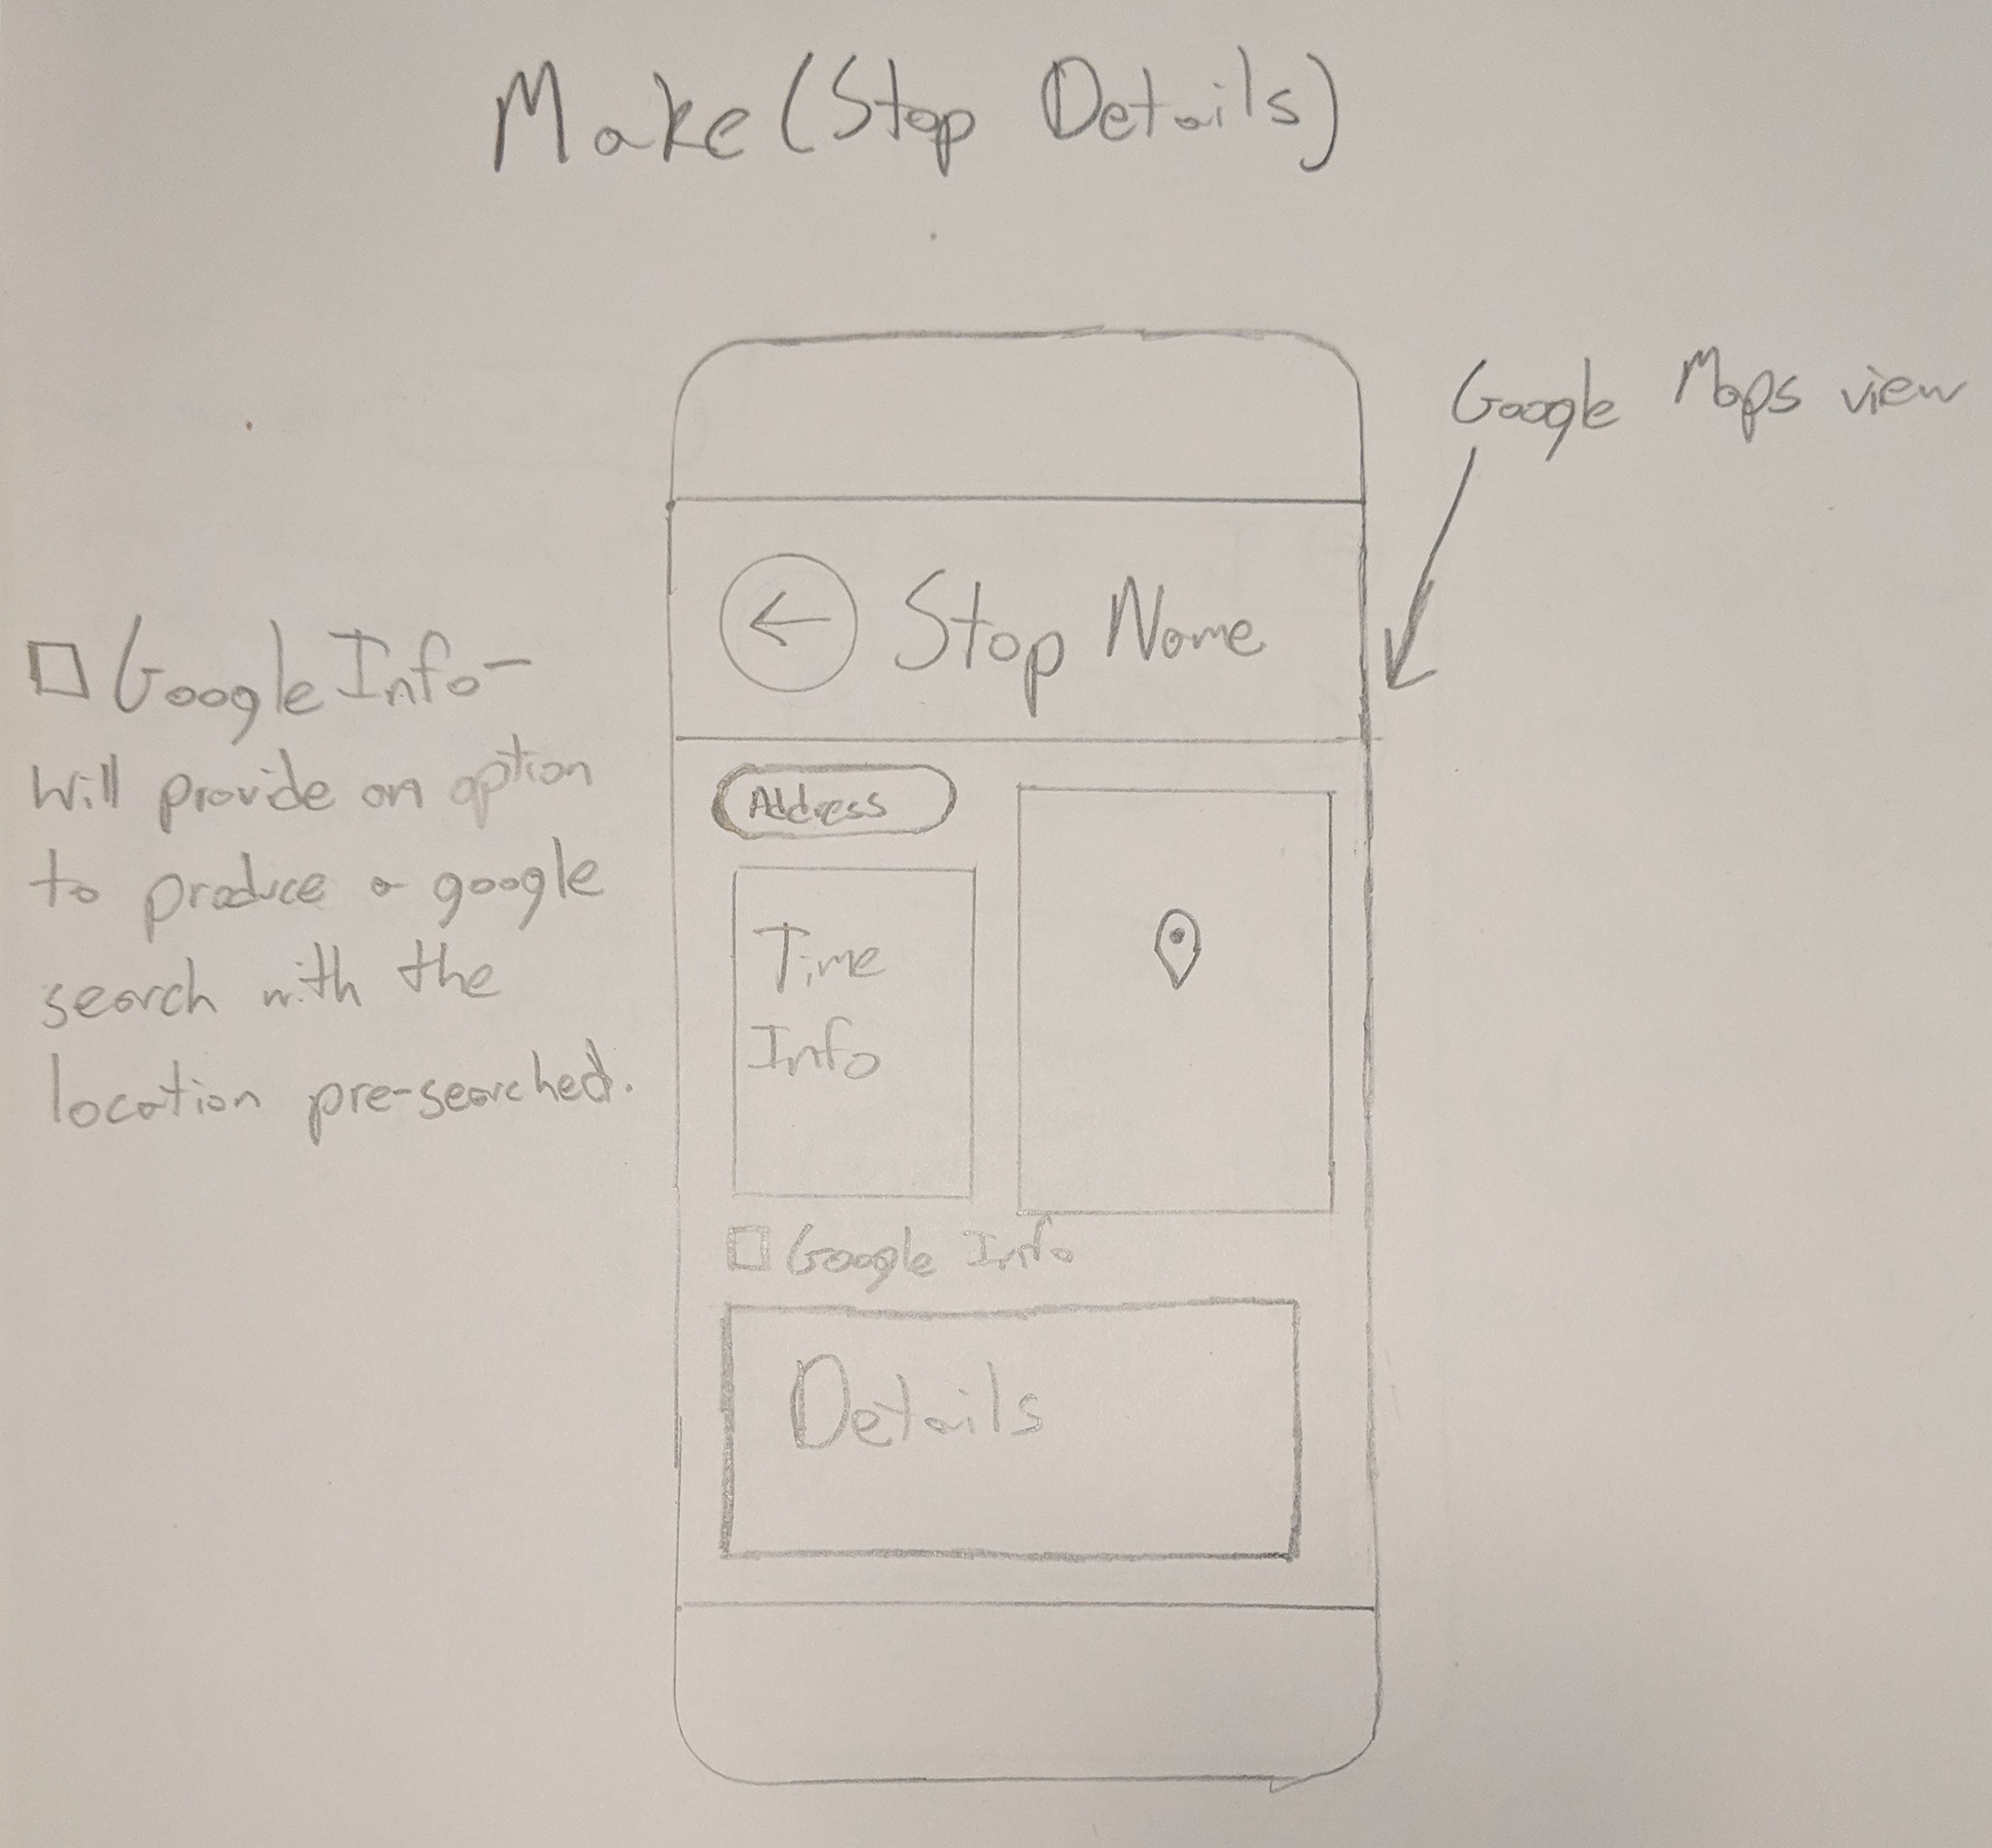 Make (Stop Details)
Google Maps view
← Stop Name
□ Google Info-
Will provide an option
to produce a google
search with the
location pre-searched.
Address
Time
Info
□ Google Info
Details